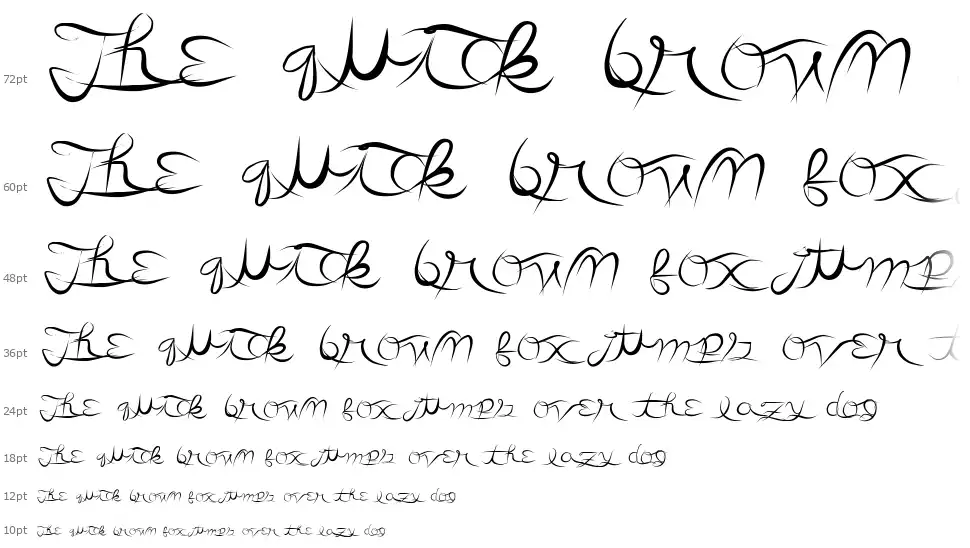 72pt The quick brown
60pt The quick brown fox
48pt The quick brown fox jump
36pt The quick brown fox jumps over t
24pt The quick brown fox jumps over the lazy dog
18pt The quick brown fox jumps over the lazy dog
12pt The quick brown fox jumps over the lazy dog
10pt The quick brown fox jumps over the lazy dog